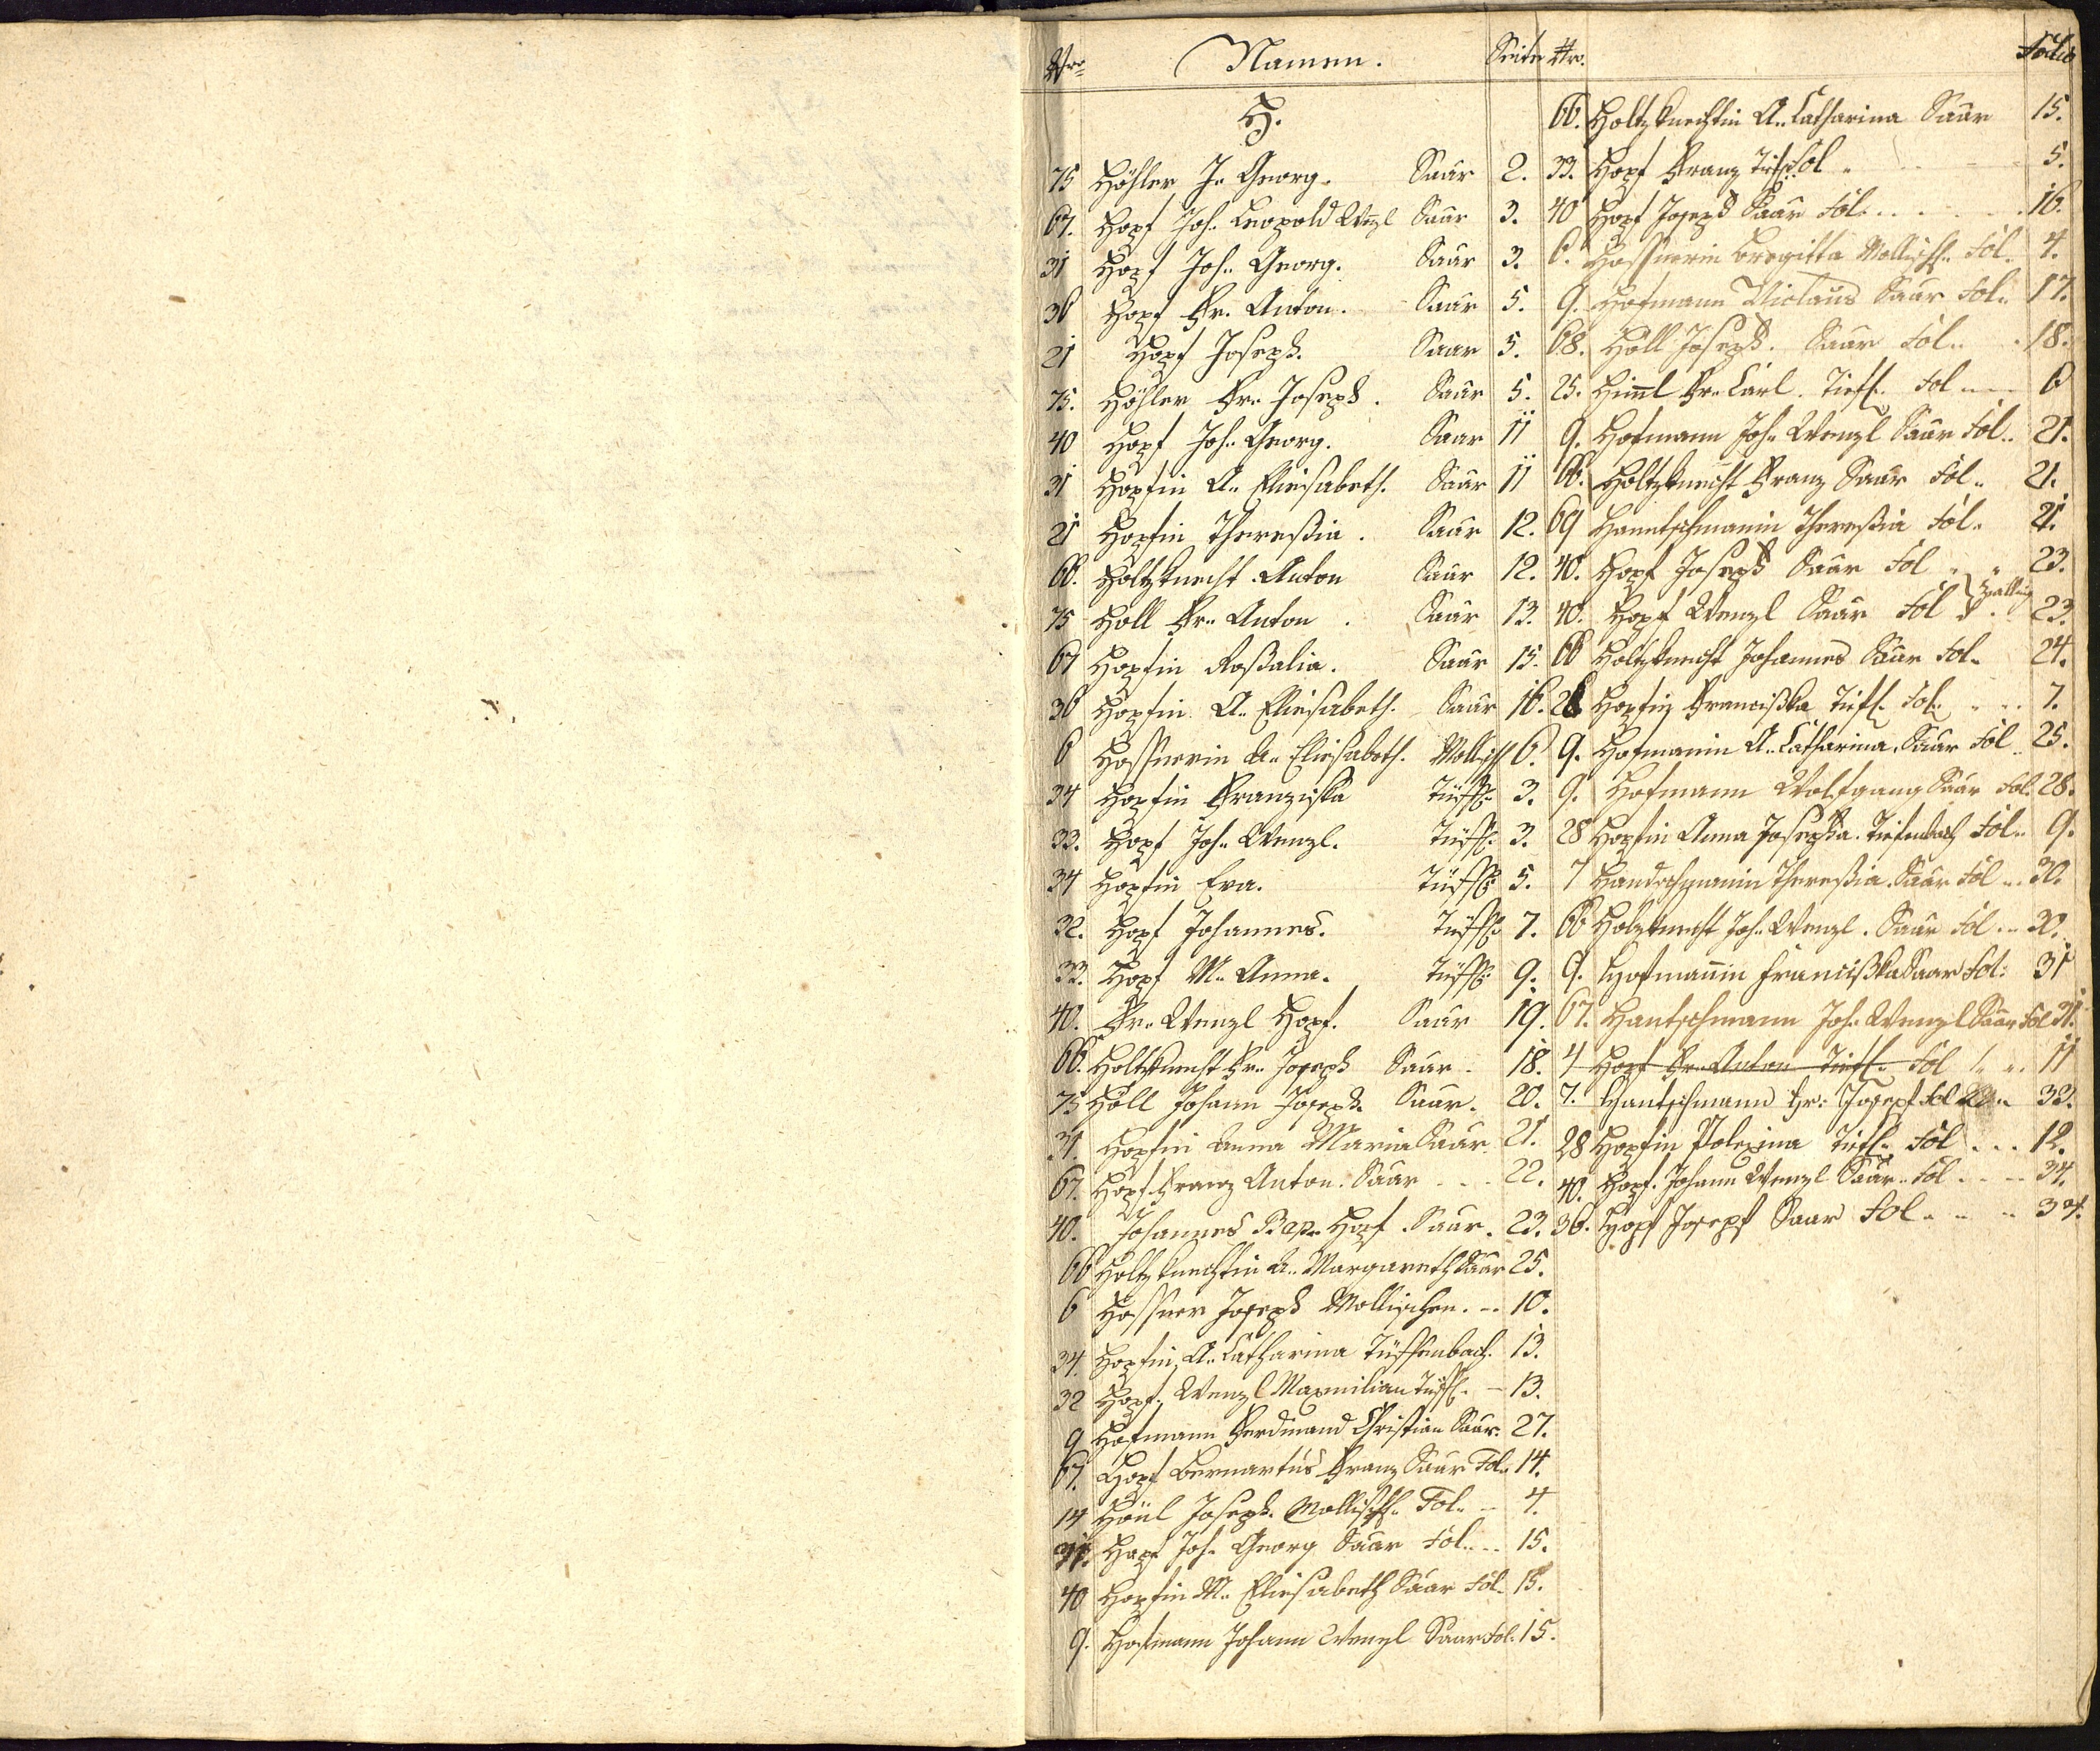 Nro. Namen. Seite
H.
75 Höhler J. Georg. Saar 2.
67. Hopf Joh. Leopold Wzl Saar 3.
31 Hopf Joh. Georg. Saar 3.
36 Hopf Fr. Anton. Saar 5.
21 Hopf Joseph. Saar 5.
75. Höhler Fr. Joseph. Saar 5.
40 Hopf Joh. Georg. Saar 11
31 Hopfin A. Eliesabeth. Saar 11
21 Hopfin Theresßia. Saar 12.
66. Holtzknecht Anton Saar 12.
75 Höll Fr. Anton. Saar 13.
67 Hopfin Rosßalia. Saar 15.
36 Hopfin A. Eliesabeth. Saar 16.
6 Hossnerin A. Eliesabeth. Mollisch 6.
34 Hopfin Franziska Tüff. 3.
33. Hopf Joh. Wenzl. Tüff. 3.
34 Hopfin Eva. Tüff. 5.
32. Hopf Johannes. Tüff. 7.
33. Hopf M. Anna. Tüff. 9.
40. Fr. Wenzl Hopf. Saar 19.
66. Holtzknecht Fr. Joseph Saar. 18.
75 Höll Johann Joseph. Saar. 20.
31. Hopfin Anna Maria Saar. 21.
67. Hopf Franz Anton. Saar 22.
40. Johannes Bap. Hopf. Saar. 23.
66 Holtzknechtin A. Margareth Saar 25.
6 Hossner Joseph Mollischen. 10.
34. Hopfin A. Catharina Tüffenbach. 13.
32 Hopf Wenzl Maxmilian Tüff. 13.
9 Hofmann Ferdinand Christian Saar. 27.
67. Hopf Bernartus Franz Saar Fol. 14.
14 Höül Joseph. Mollisch. Fol. 4.
31. Hopf Joh. Georg Saar Fol. 15.
40 Hopfin M. Eliesabeth Saar Fol. 15.
9. Hofmann Johann Wenzl Saar Fol. 15.
Nro. Folio
66. Holtzknechtin A. Catharina Saar 15.
33. Hopf Franz Tief. Fol. 5.
40 Hopf Joseph Saar Fol. 16.
6. Hossnerin Bregitta Mollisch. Fol. 4.
9. Hofmann Niclaus Saar Fol. 17.
68. Höll Joseph. Saar Fol. 18.
25. Himl Fr. Carl. Tief. Fol 6
9. Hofmann Joh. Wenzl Saar Fol. 21.
66. Holtzknecht Franz Saar Fol. 21.
69 Hantschmanin Theresßia Fol. 21.
40. Hopf Joseph Saar Fol 23.
Zwilling
40. Hopf Wenzl Saar Fol 23.
66 Holtzknecht Johannes Saar Fol. 24.
28 Hopfin Francißka Tief. Fol. 7.
9. Hofmanin A. Catharina. Saar Fol 25.
9. Hofmann Wolfgang Saar Fol. 28.
28 Hopfin Anna Josepha. Tiefenbach Fol. 9.
7 Handschmanin Theresßia Saar Fol 30.
66. Holzknecht Joh. Wenzl. Saar Fol 30.
9. Hofmanin Francißka Saar Fol: 31
67. Hantschmann Joh. Wenzl Saar Fol 31.
4 Hopf Fr. Anton Tief. Fol 11
7. Hantschmann Fr: Joseph Fol 33.
28 Hopfin Polexina Tief. Fol 12.
40. Hopf Johann Wenzl Saar. Fol 34.
36. Hopf Joseph Saar Fol 34.